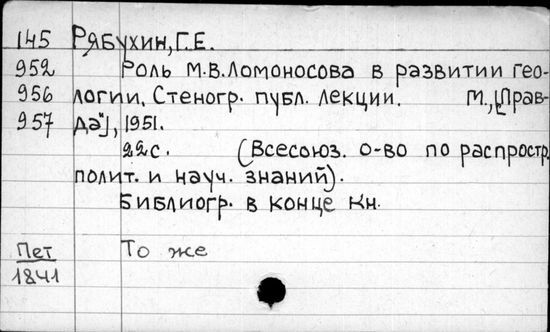 145 Рябухин, Г.Е.
952 Роль М.В. Ломоносова в развитии гео-
956 логии. Стеногр. публ. лекции. М., ["Прав-
957 да"], 1951.
22с. (Всесоюз. о-во по распростр.
полит. и науч. знаний).
Библиогр. в конце кн.
Пет То же
1841